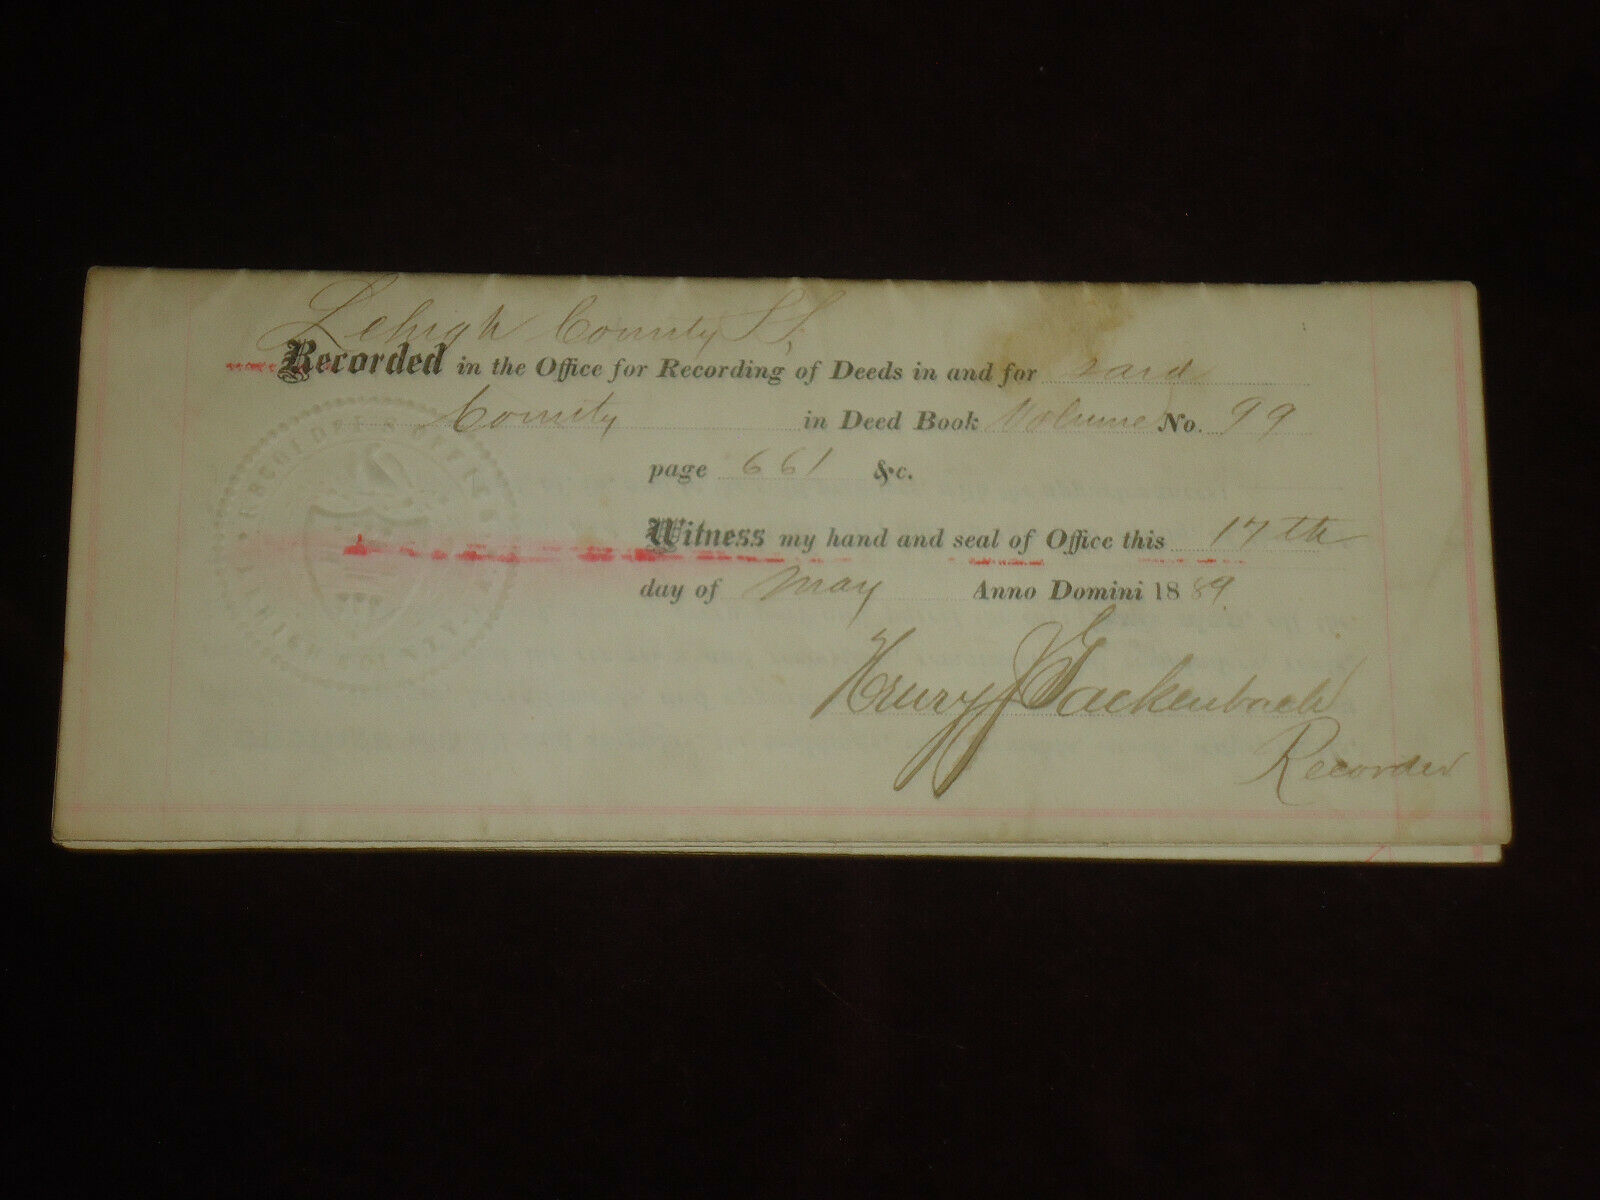 Lehigh County SS,
Recorded in the Office for Recording of Deeds in and for said
County in Deed Book Volume No. 99
page 661 &c.
Witness my hand and seal of Office this 17th
day of May Anno Domini 1889
Henry J Gackenbach
Recorder
RECORDER'S OFFICE
LEHIGH COUNTY